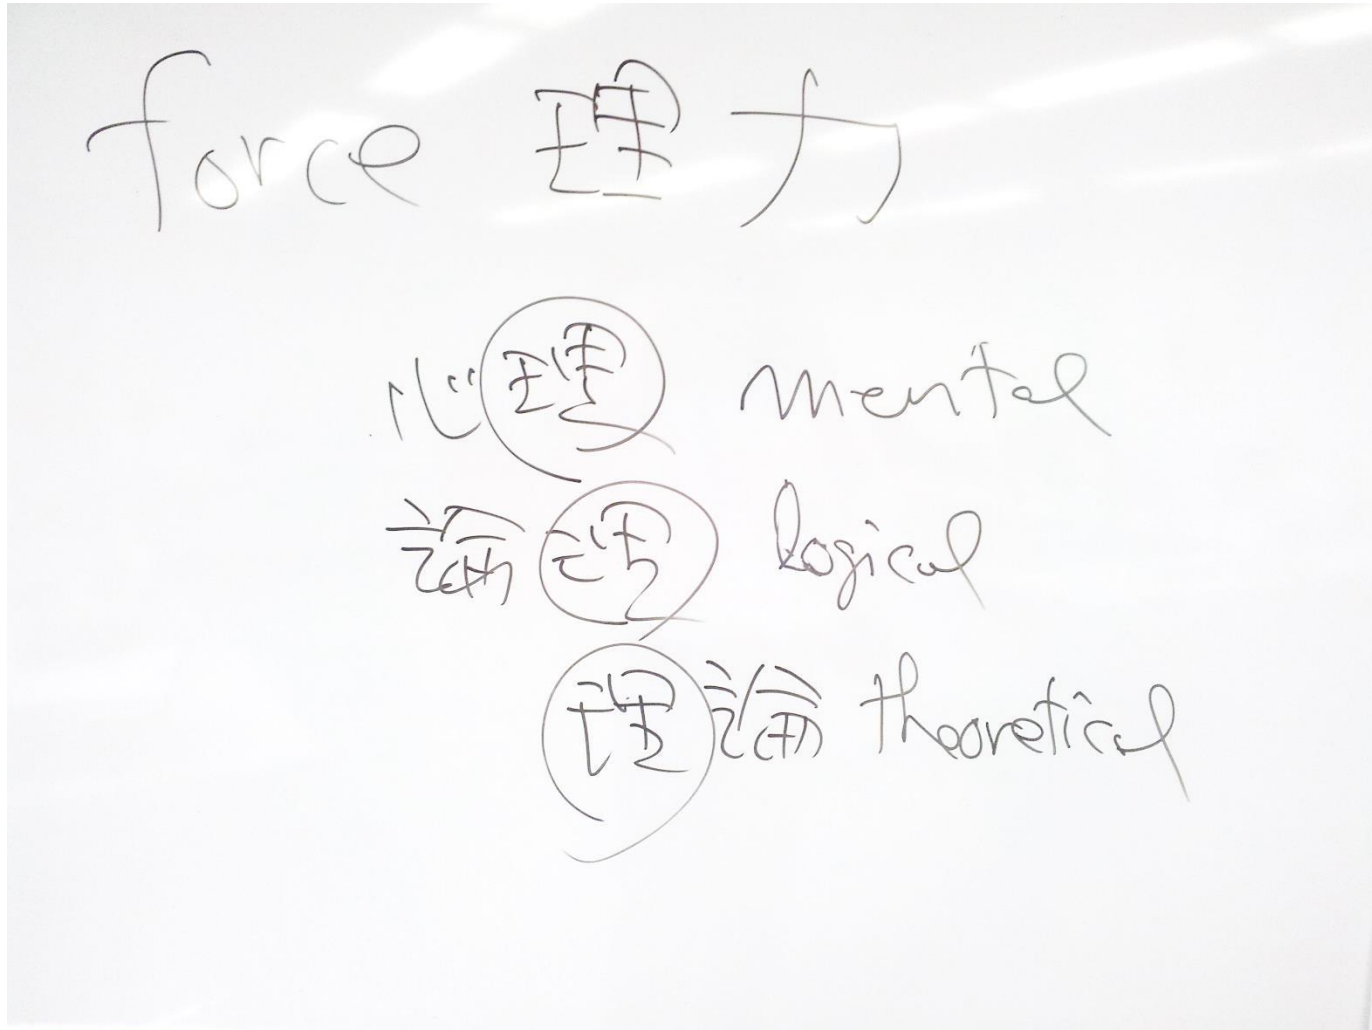 force 理力
心理 mental
論理 logical
理論 theoretical